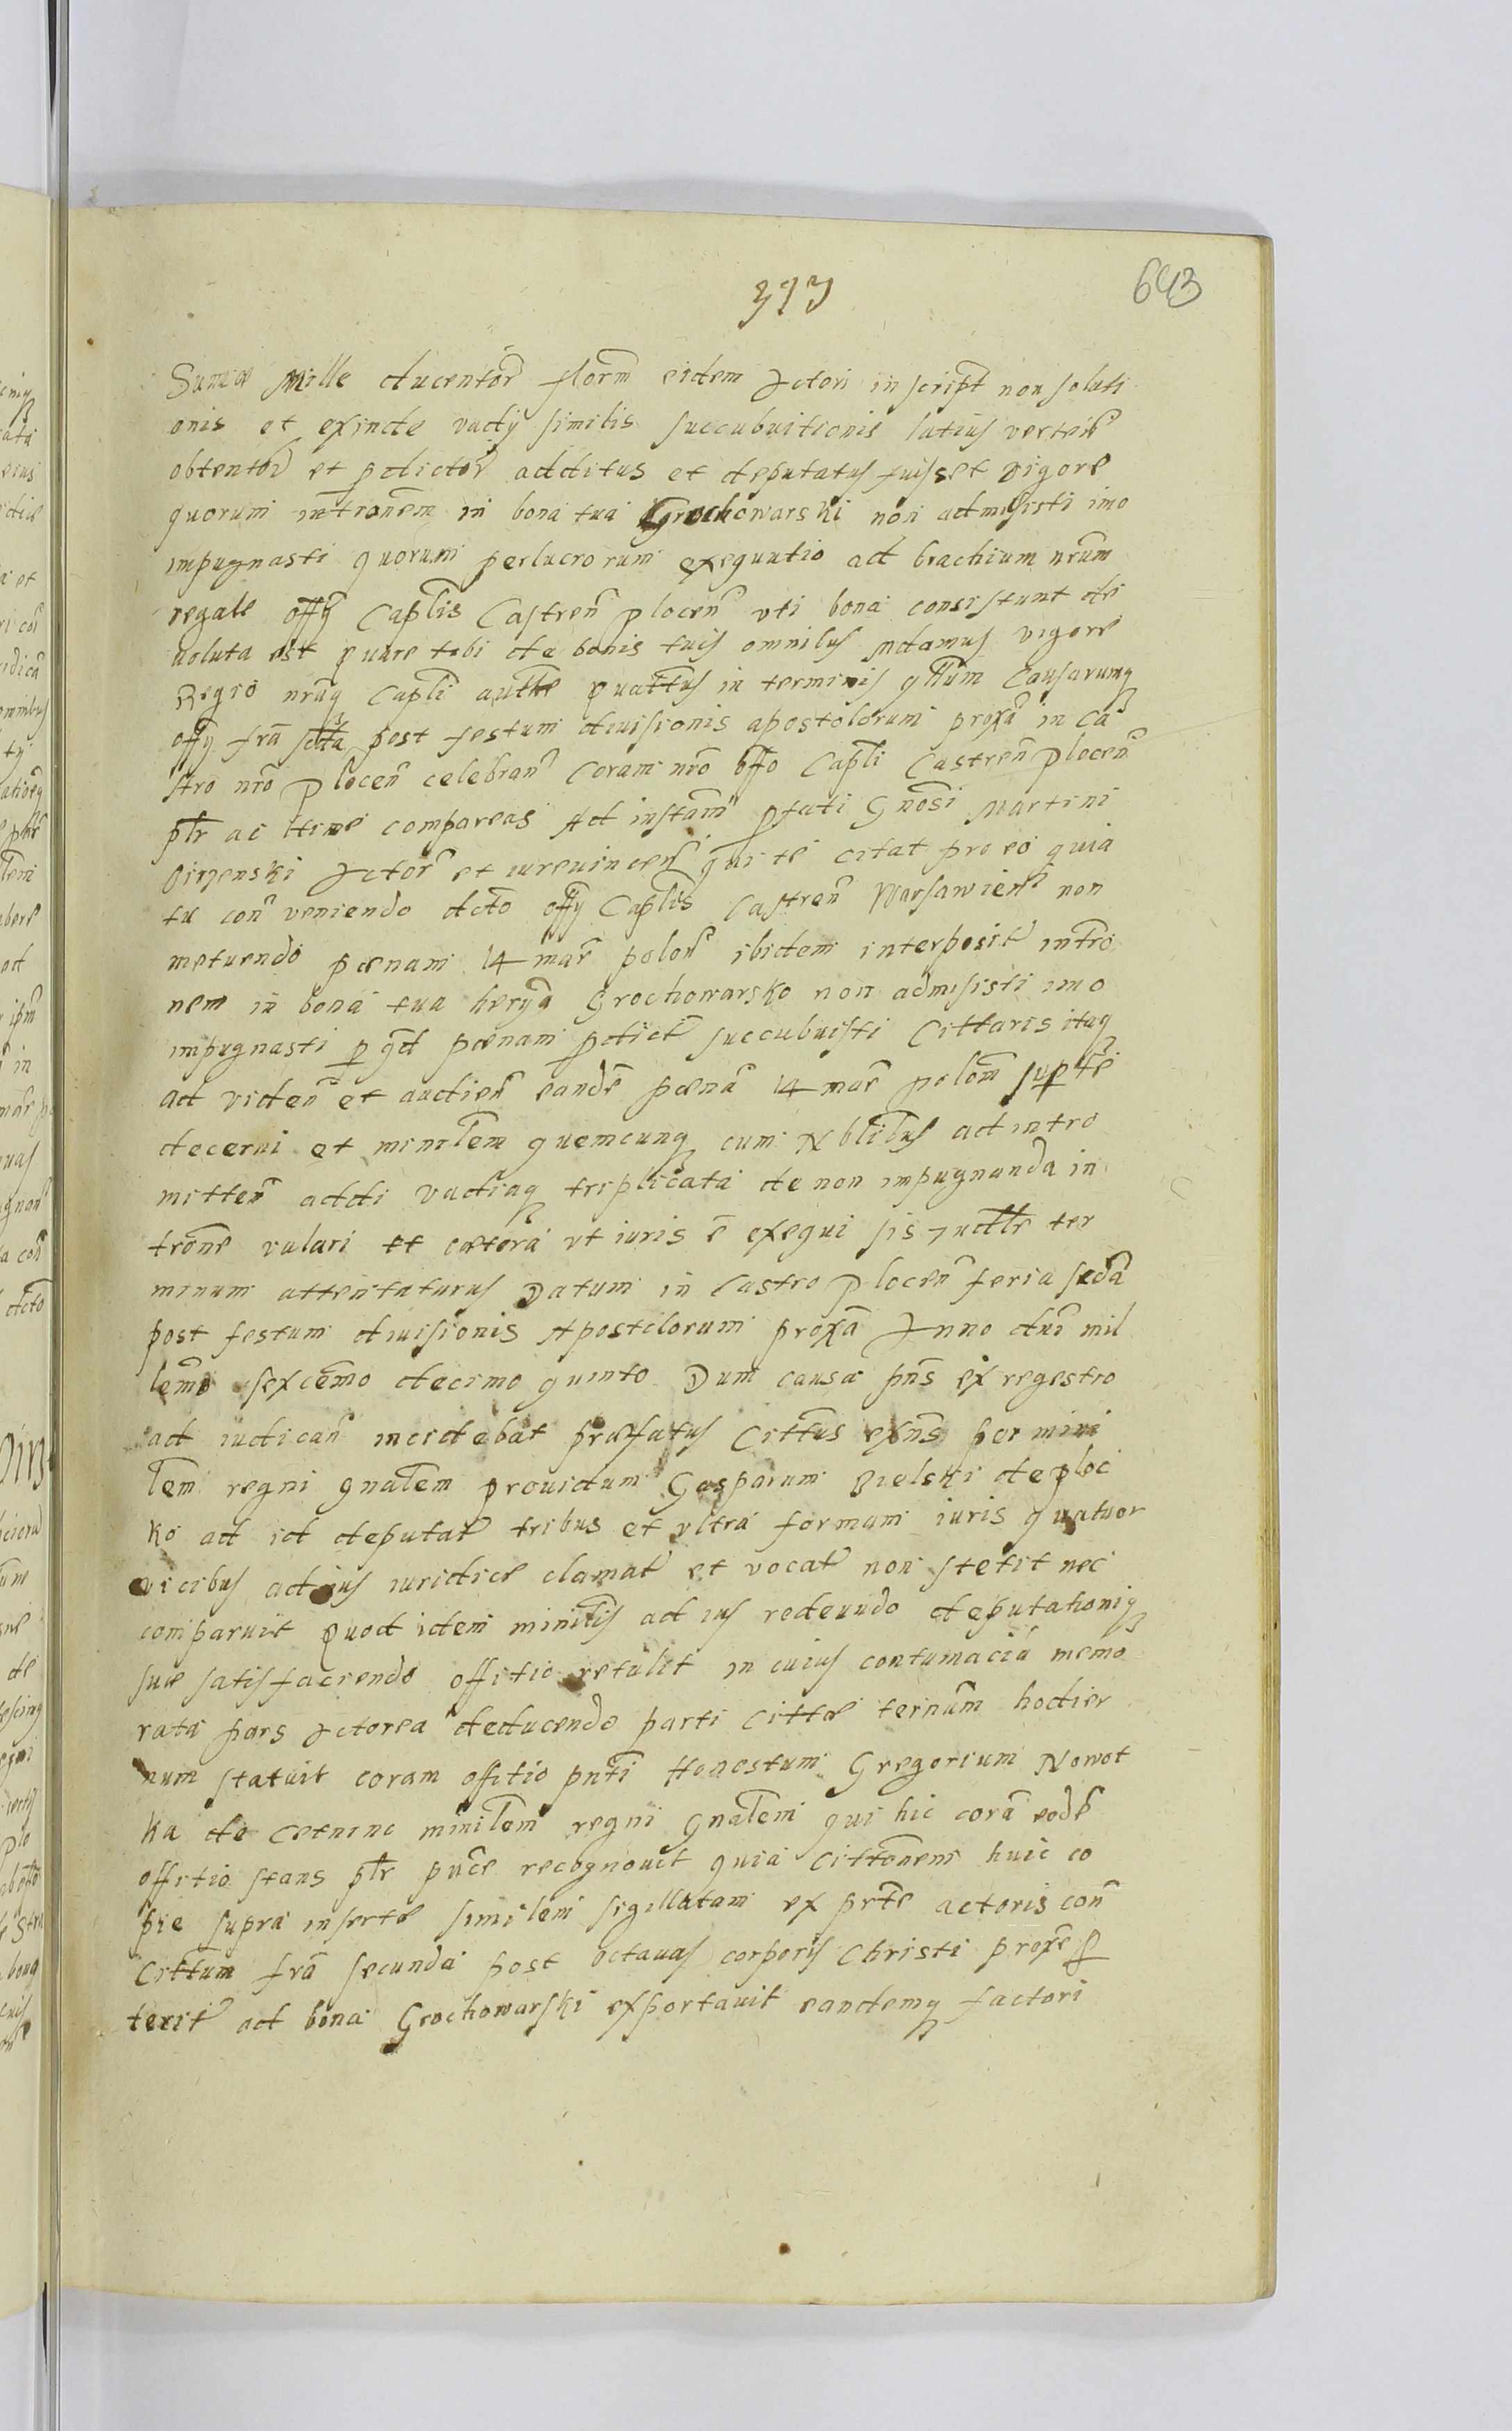 643
Summæ Mille ducentor̃ flor̃m eidem Actori inscript̃ non soluti
onis et exinde vadÿ similis succubuitionis latius verten̄
obtentor̃ et p̱dictor̃ additus et deputatus fuisset Vigore
quorum intr̃onem in bona tua Grochowarski non admisisti imo
impugnasti quorum perlucrorum exequutio ad brachium nr̃um
regale offÿ Capt̃lis Castren̄ Plocen̄ vti bona consistunt de
uoluta est Quare tibi de bonis tuis omnibus Mdamus vigore
Regio nr̃aq̨ Capt̃li auth̃e Quat̃tus in terminis Causarumq̨
offÿ fr̃a post festum diuisionis apostolorum prox̃a in Ca
stro nr̃o Plocen̄ celebran̄ Coram nr̃o off̃o Capt̃li Castren̄ Plocen̄
pt̃r ac compareas Ad instam̃ p̱fati Gn̄osi Martini
Actor̃ et iureuincen̄ qui te citat pro eo quia
tu con̄ veniendo dct̃o offÿ Capt̃lis Castren̄ Warsawien̄ non
metuendo pœnam 14 mar̃ polon̄ ibidem interposit̃ intr̃o
nem in bona tua Grochowarsko non admisisti imo
impugnasti p̱ qd̃ pœnam p̱dict̃ succubuisti Cittaris itaq̨
ad viden̄ et audien̄ eandē pœnā 14 mar̃ polon̄ sup̱ te
decerni et minist̃lem quemcunq̨ cum Nobt̃libus ad intro
mitten̄ addi Vadiaq̨ triplicata de non impugnanda in
tr̃one valari et cætera vt iuris ē exequi sis Judt̃le ter
minum attentaturus Datum in Castro Plocen̄ feria sed̃a
post festum diuisionis Apostolorum prox̃a Anno dn̄i mil
lem̃o sexcem̃o decimo quinto Dum causa pn̄s ex regestro
ad iudican̄ incidebat præfatus Citt̃us exn̄s per mini
lem̃ regni gn̄alem prouidum Gasparum Bielski de Ploc
ko ad id deputat̃ tribus et vltra formam iuris quatuor
vicibus ad ius iuridice clamat̃ et vocat̃ non stetit nec
comparuit Quod idem minist̃lis ad ius redeundo deputationiq̨
suæ satisfaciendo offitio retulit in cuius contumaciā memo
rata pars Actorea deducendo parti Cittæ tern̄um hodier
num statuit coram offitio pn̄ti Honestum Gregorium Nowot
ka de Cetnino minist̃lem regni Gn̄alem qui hic corā eodē
offitio stans pt̃r pn̄ce recognouit quia Cittōnem huic co
piæ supra insertæ similem sigillatam ex prt̃e actoris con̄
Citt̃um fr̃a secunda post octauas corporis Christi prox̃e p̱
terit̃ ad bona Grochowarski exportauit eandemq̨ factori